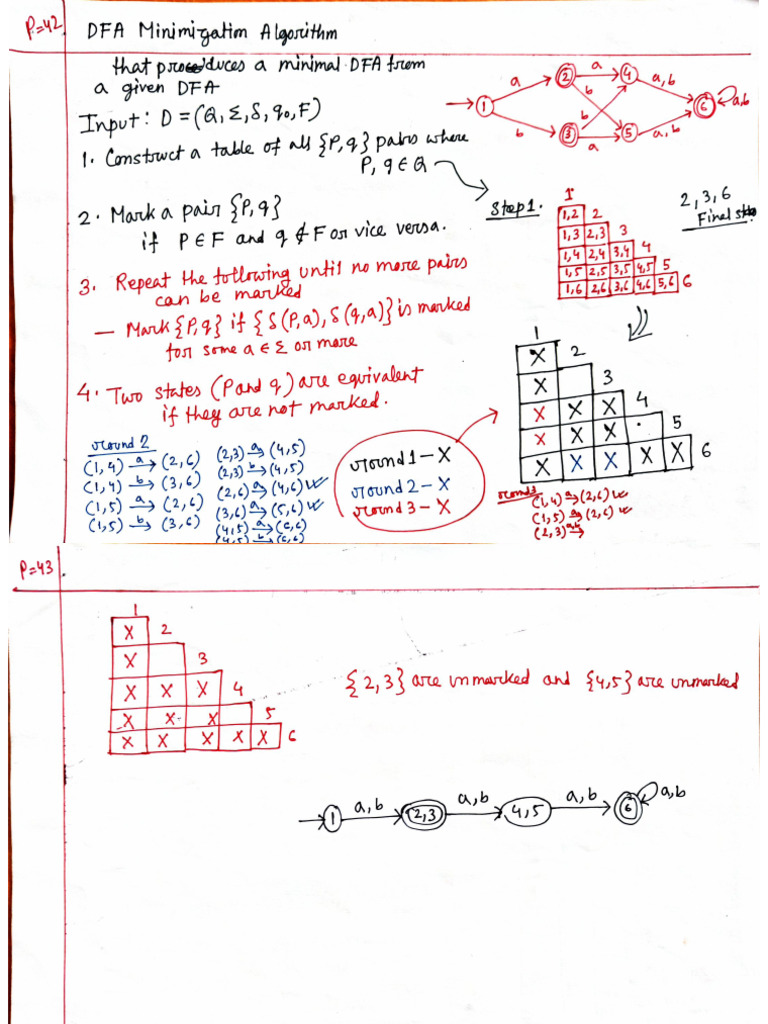 P=42
DFA Minimization Algorithm
that produces a minimal DFA from
a given DFA
Input: D = (Q, Σ, δ, q0, F)
1. Construct a table of all {P,q} pairs where
P, q ∈ Q
1 2 3 4 5 6
a b a b b a a,b a,b a,b
Step 1.
2, 3, 6
1
1,2 2
1,3 2,3 3
1,4 2,4 3,4 4
1,5 2,5 3,5 4,5 5
1,6 2,6 3,6 4,6 5,6 6
2. Mark a pair {P,q}
if P ∈ F and q ∉ F or vice versa.
3. Repeat the following until no more pairs
can be marked
— Mark {P,q} if {δ(P,a), δ(q,a)} is marked
for some a ∈ Σ or more
4. Two states (P and q) are equivalent
if they are not marked.
1
X 2
X 3
X X X 4
X X X 5
X X X X X 6
round 2
(1,4) a→ (2,6)
(1,4) b→ (3,6)
(1,5) a→ (2,6)
(1,5) b→ (3,6)
(2,3) a→ (4,5)
(2,3) b→ (4,5)
(2,6) a→ (4,6) ✓
(3,6) a→ (5,6) ✓
(4,5) a→ (6,6)
(4,5) b→ (6,6)
round 1 – X
round 2 – X
round 3 – X
round 3
(1,4) a→ (2,6) ✓
(1,5) a→ (2,6) ✓
(2,3) a,b→
P=43
1
X 2
X 3
X X X 4
X X X 5
X X X X X 6
{2,3} are unmarked and {4,5} are unmarked
1 a,b 2,3 a,b 4,5 a,b 6 a,b